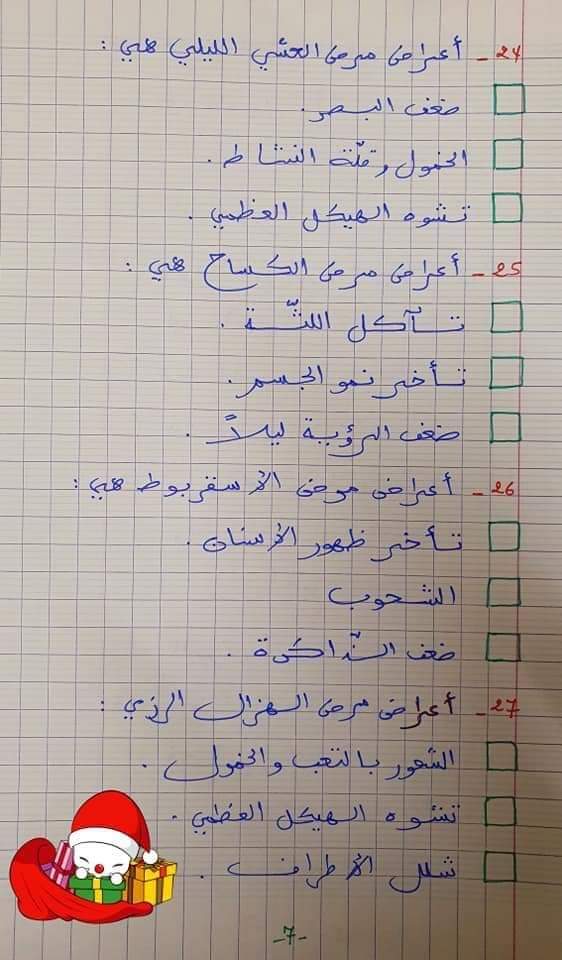 24 - أعراض مرض العشي الليلي هي :
ضعف البصر.
الخمول وقلّة النشاط .
تشوه الهيكل العظمي .
25 - أعراض مرض الكساح هي :
تآكل اللثّة .
تأخر نمو الجسم .
ضعف الرؤية ليلاً .
26 - أعراض مرض الأسقربوط هي :
تأخر ظهور الأسنان .
الشحوب
ضعف الذّاكرة .
27 - أعراض مرض الهزال الرزي :
الشعور بالتعب والخمول .
تشوه الهيكل العظمي .
شلل الأطراف .
-7-